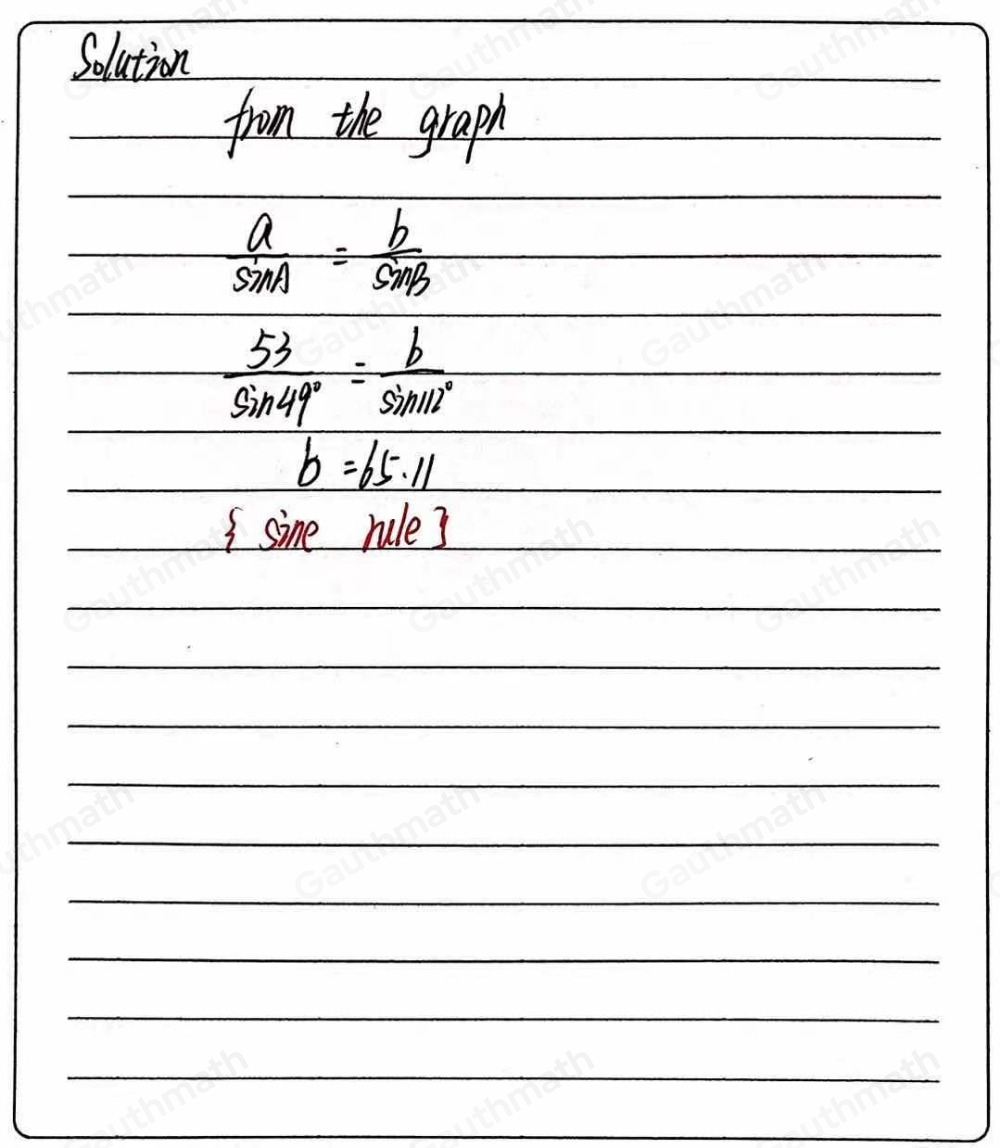 Solution
from the graph
a/sinA = b/sinB
53/sin49° = b/sin112°
b = 65.11
{ sine rule }